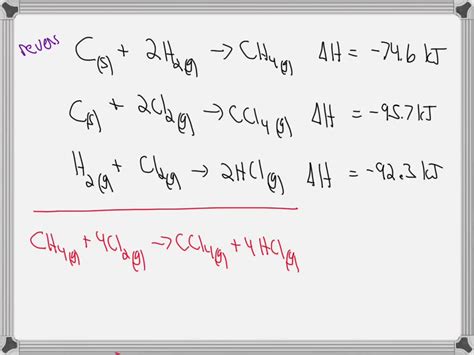 revers C(s) + 2H2(g) → CH4(g) ΔH = -74.6 kJ
C(s) + 2Cl2(g) → CCl4(g) ΔH = -95.7 kJ
H2(g) + Cl2(g) → 2HCl(g) ΔH = -92.3 kJ
CH4(g) + 4Cl2(g) → CCl4(g) + 4HCl(g)